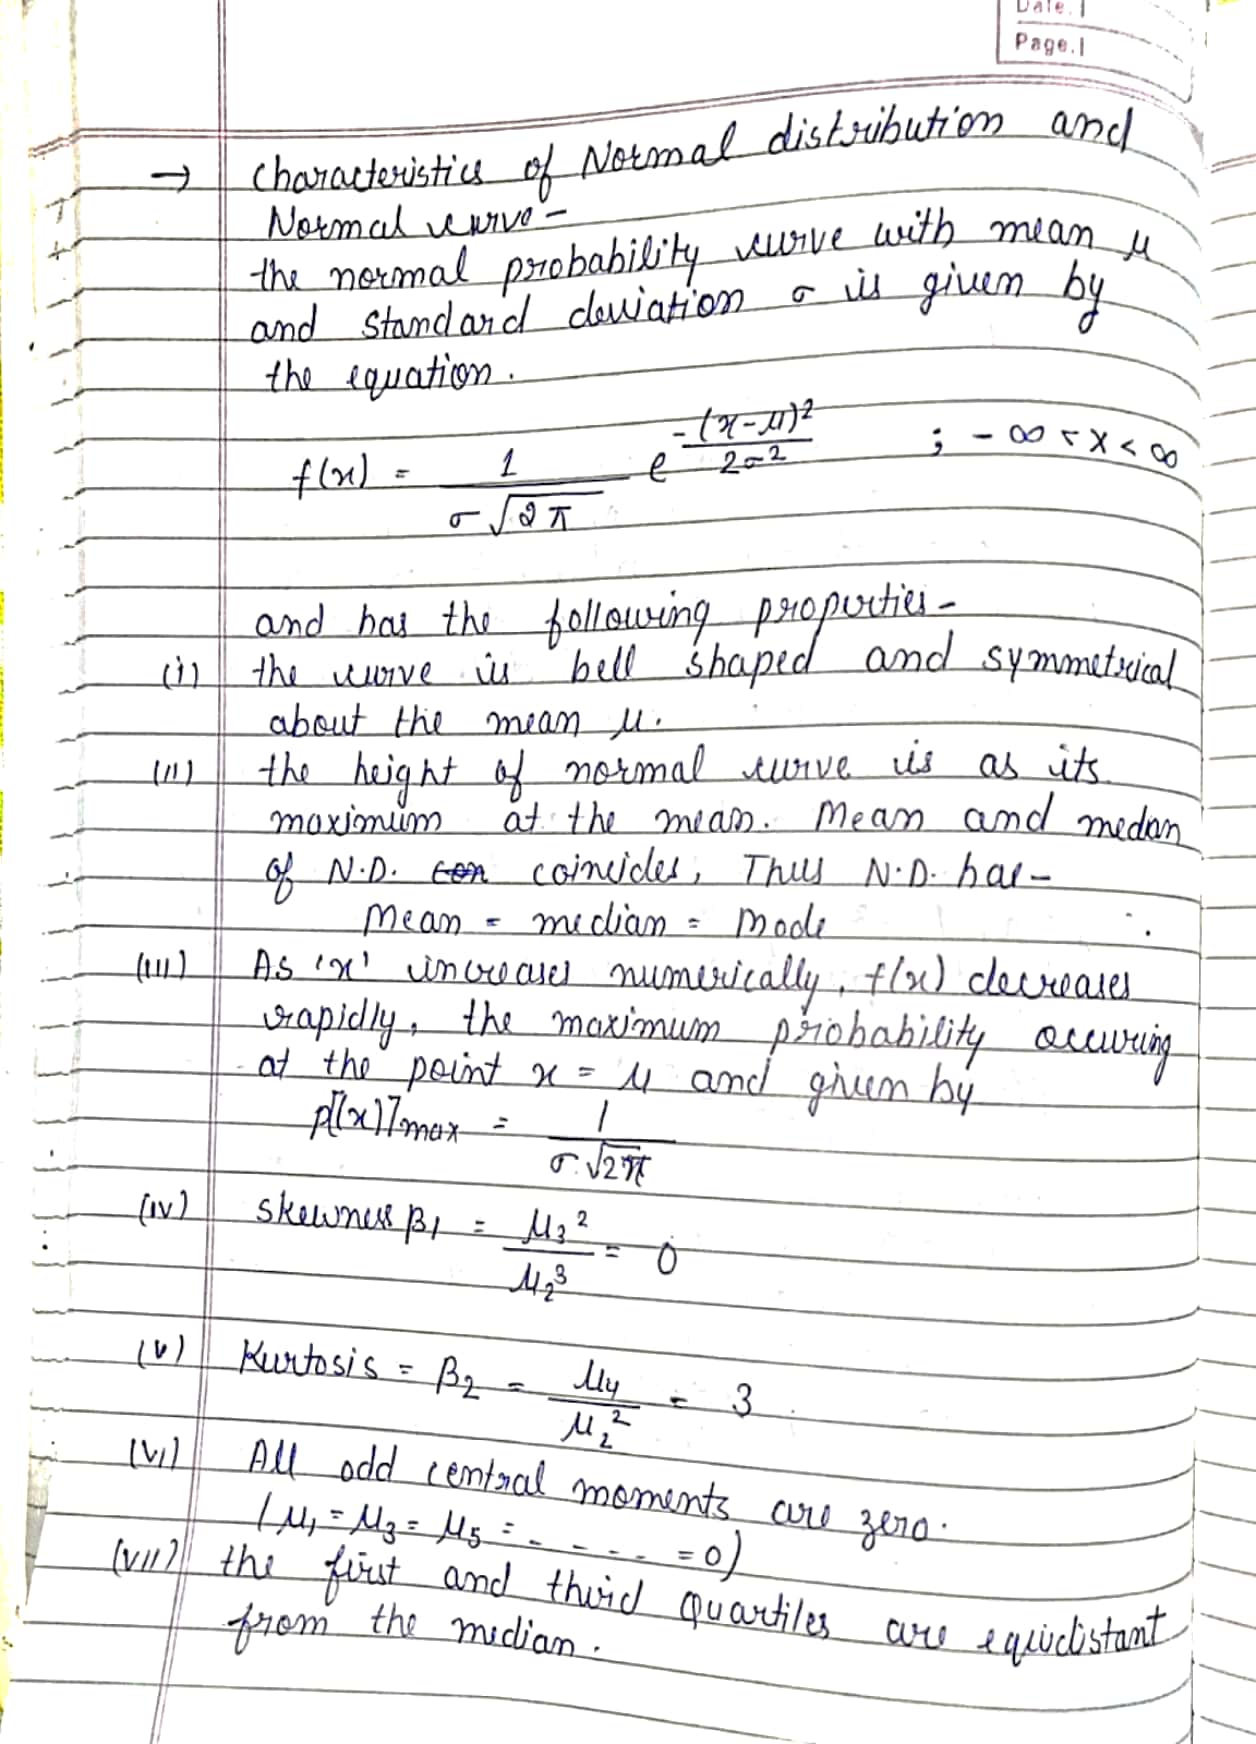 Date.
Page.
→ Characteristics of Normal distribution and
Normal curve -
the normal probability curve with mean μ
and standard deviation σ is given by
the equation.
f(x) = 1/(σ√2π) e^(-(x-μ)²/2σ²) ; -∞ < x < ∞
and has the following properties -
(i) the curve is bell shaped and symmetrical
about the mean μ.
(ii) the height of normal curve is as its
maximum at the mean. Mean and medan
of N.D. con coincides, Thus N.D. has -
Mean = median = Mode
(iii) As 'x' increases numerically, f(x) decreases
rapidly, the maximum probability occuring
at the point x = μ and given by
p[(x)]max = 1/(σ.√2π)
(iv) Skewness β₁ = μ₃²/μ₂³ = 0
(v) Kurtosis = β₂ = μ₄/μ₂² = 3
(vi) All odd central moments are zero.
(μ₁ = μ₃ = μ₅ = - - - - = 0)
(vii) the first and third Quartiles are equidistant
from the median.